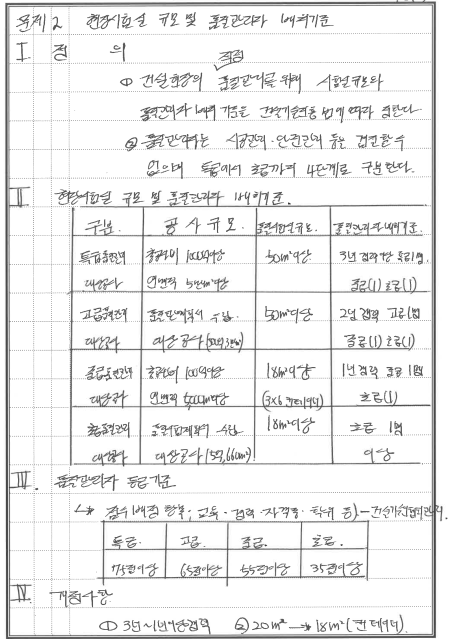 문제 2 현장시험실 규모 및 품질관리자 배치기준
I. 정 의
적정
① 건설현장의 품질관리를 위해 시험실규모와
품질관리자 배치 기준을 건설기술진흥법에 따라 정한다.
② 품질관리자는 시공관리·안전관리 등을 겸할 수
없으며 특급에서 초급까지 4단계로 구분한다.
II. 현장시험실 규모 및 품질관리자 배치기준.
구분. 공사규모. 품질시험실규모. 품질관리자배치기준.
특급품질관리 총공사비 1000억이상 50m²이상 3년 경력 특급 1명.
대상공사 연면적 5만m²이상 중급(1) 초급(1)
고급품질관리 품질관리계획서 수립 50m²이상 2년 경력 고급 1명
대상공사 대상공사 중급(1) 초급(1)
중급품질관리 총공사비 100억이상 18m²이상 1년 경력 중급 1명
대상공사 연면적 5,000m²이상 (3×6 컨테이너) 초급(1)
초급품질관리 품질시험계획서 수립 18m²이상 초급 1명
대상공사 대상공사(5억, 660m²) 이상
IV. 품질관리자 등급기준
점수배점 항목; 교육·경력·자격증·학위 등)-
특급. 고급. 중급. 초급.
75점이상 65점이상 55점이상 35점이상
IV 개정사항
① 3년→1년이상경력 ② 20m² → 18m² (컨테이너)